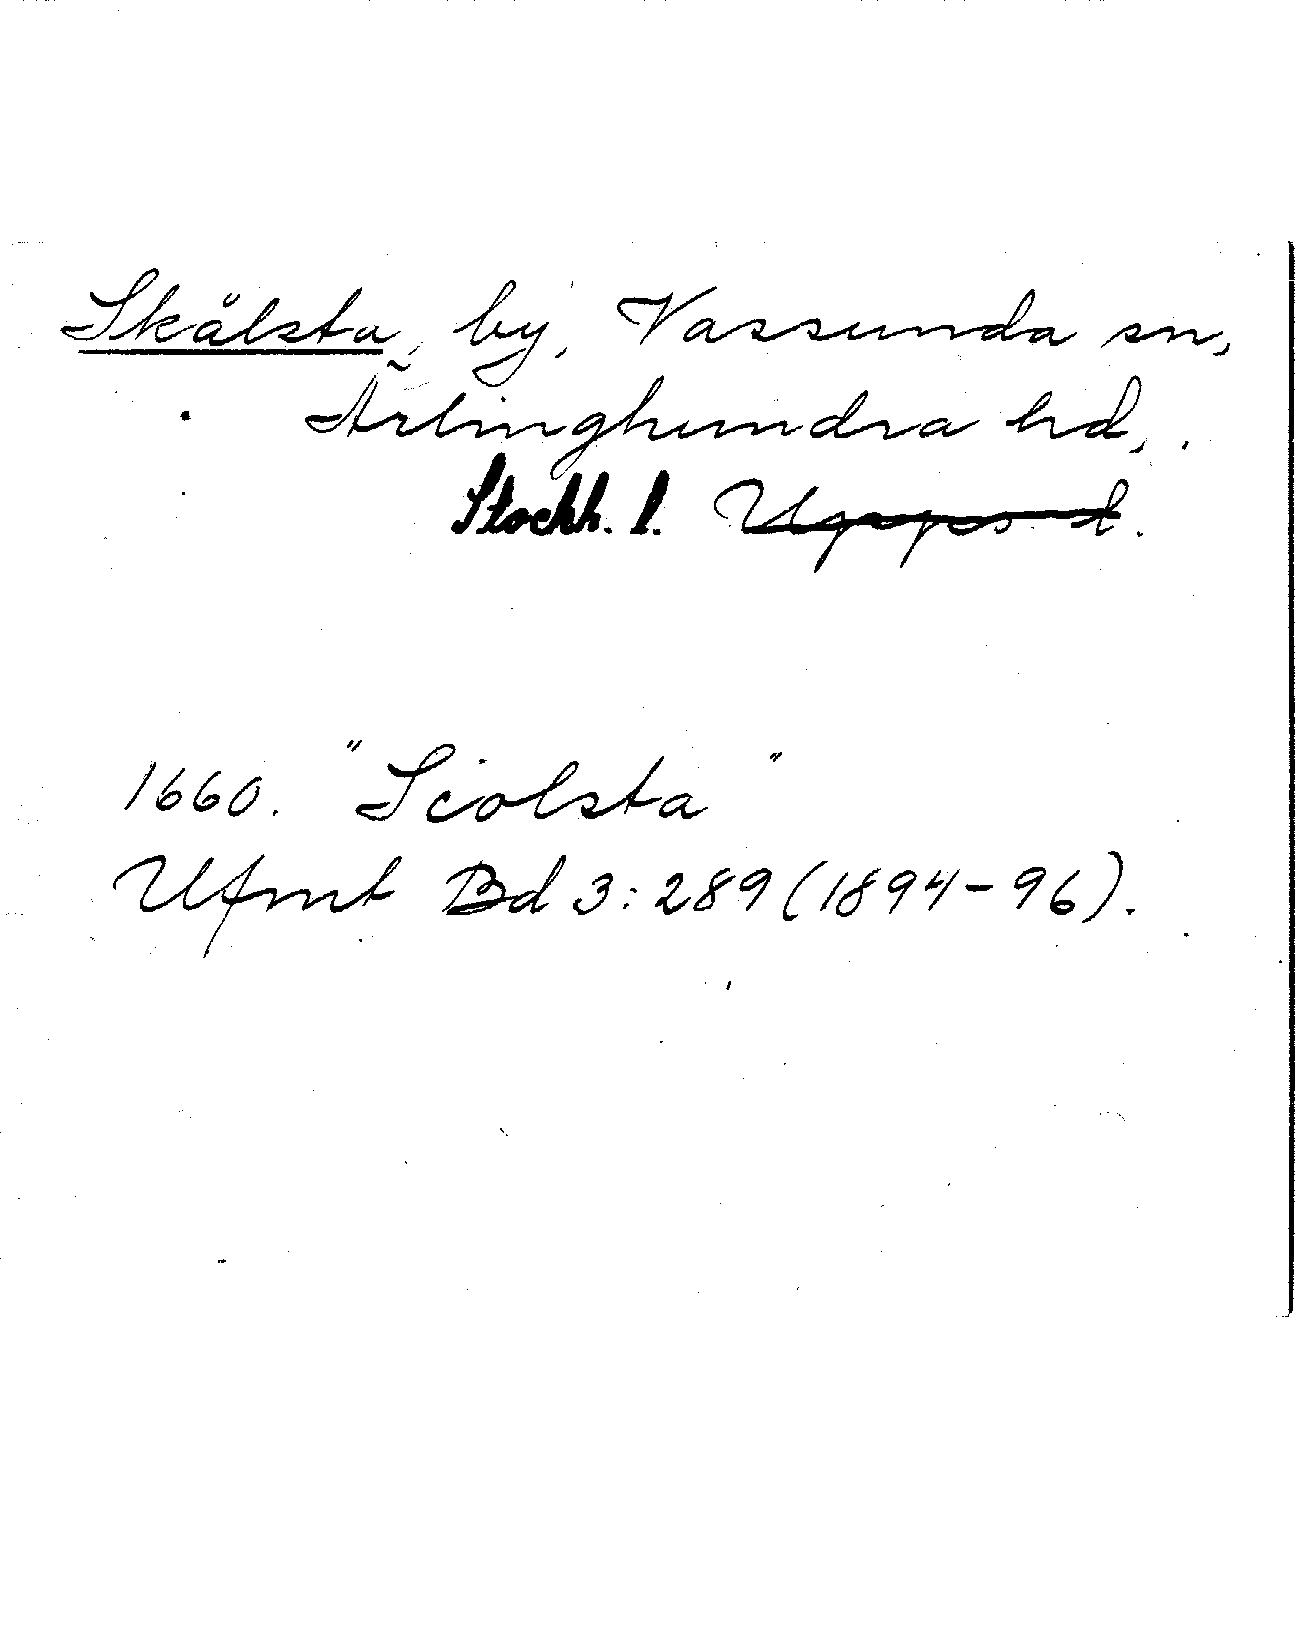 Skålsta, by, Vassunda sn,
Ärlinghundra hd,
Stockh. l. Upps. l.
1660. "Scolsta"
Ufmt Bd 3:289 (1894-96).